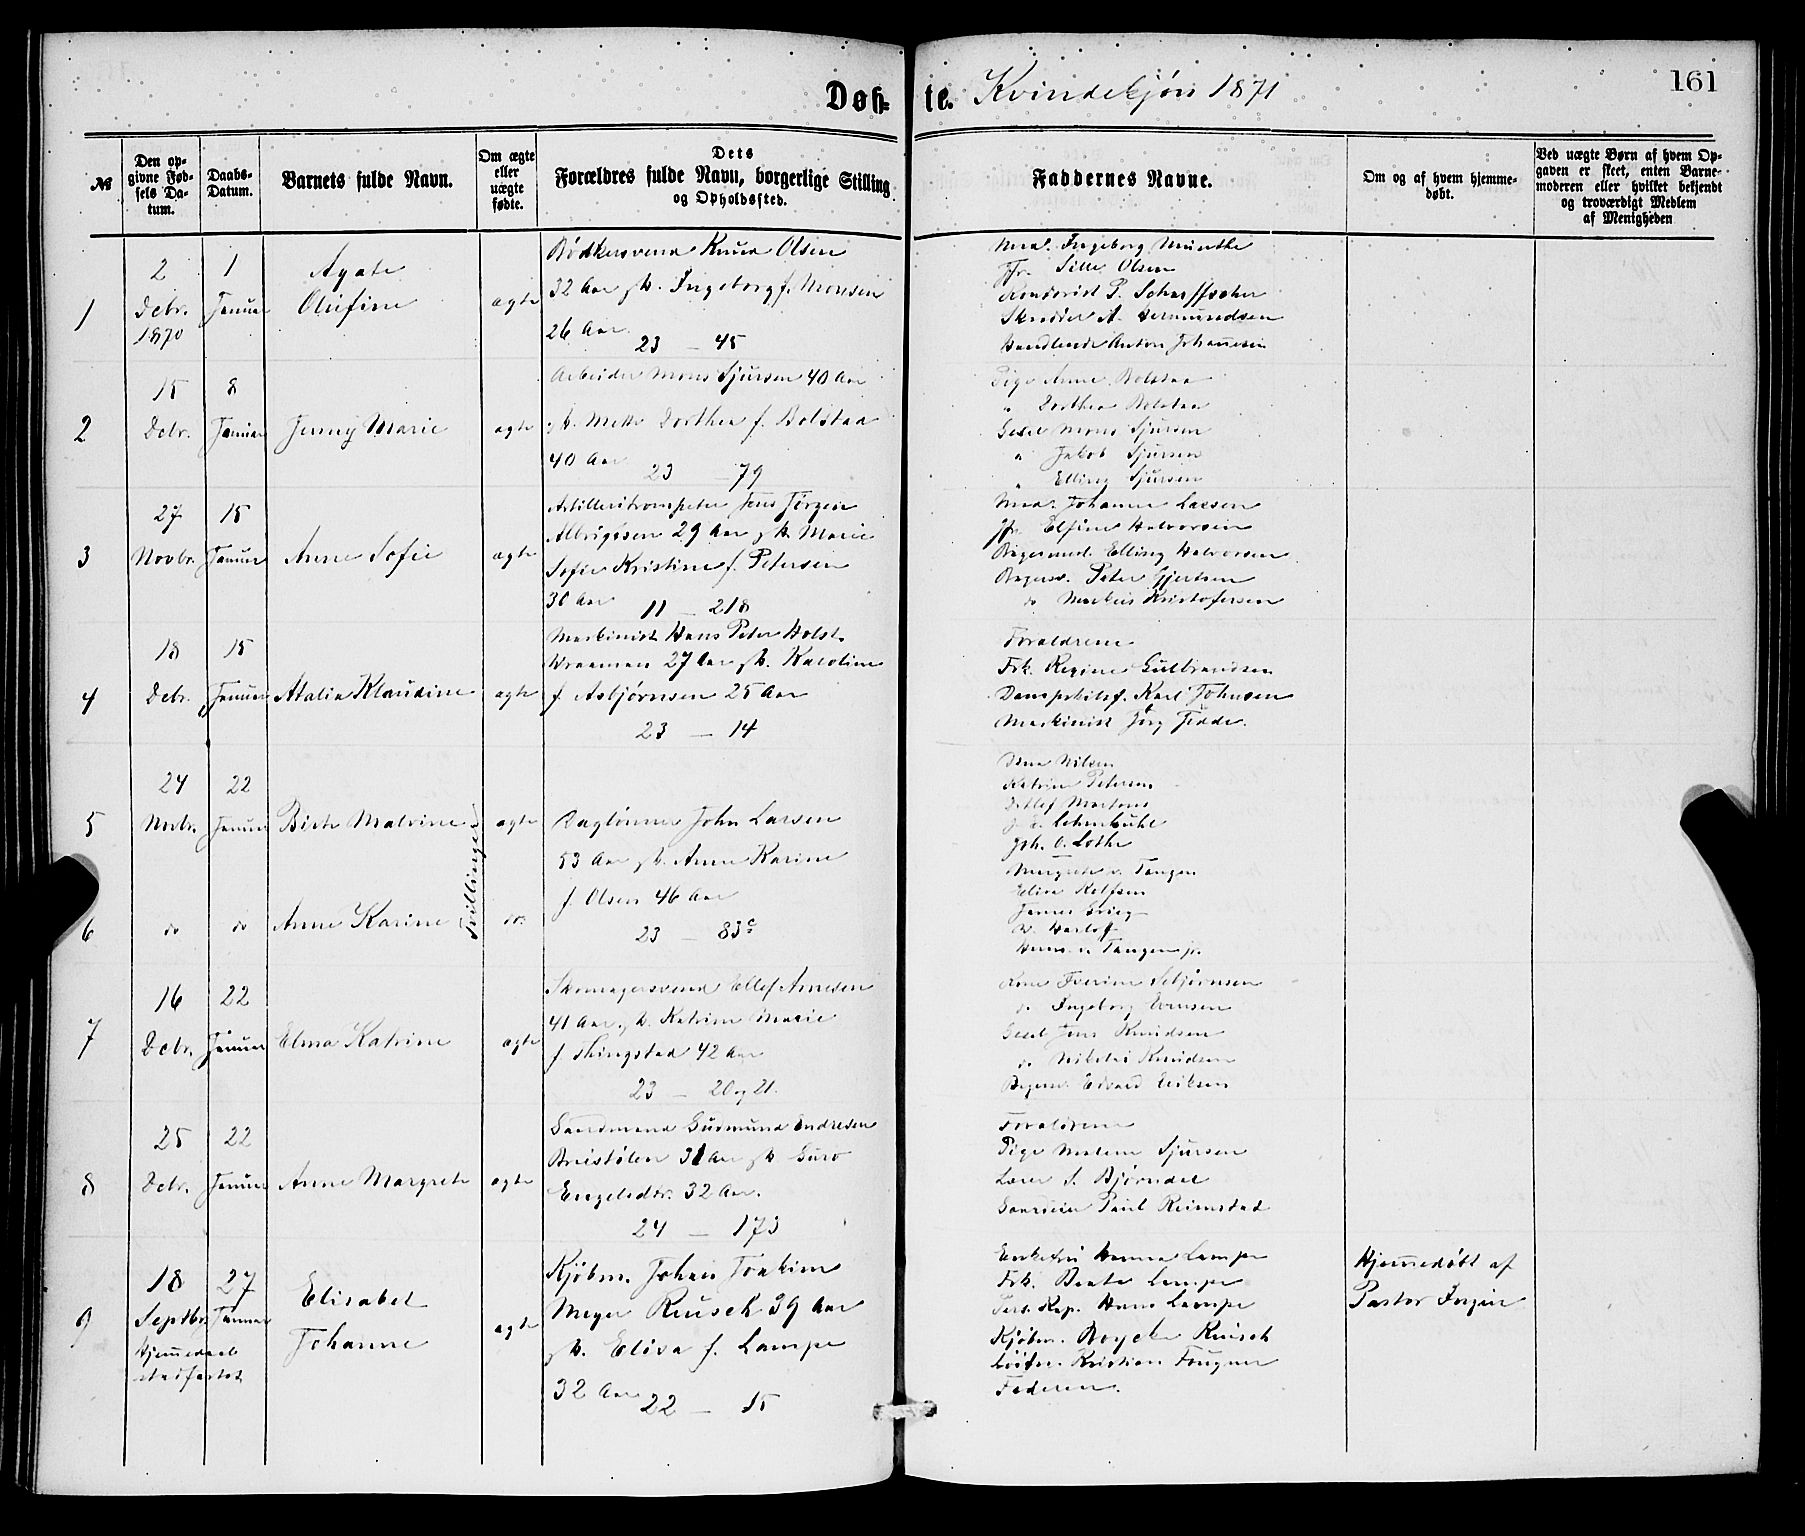 Døb- te. Kvindekjøn 1871
161
№
Den opgivne Fødsels Datum.
Daabs-Datum.
Barnets fulde Navn.
Om ægte eller uægte fødte.
Dets Forældres fulde Navn, borgerlige Stilling og Opholdssted.
Faddernes Navne.
Om og af hvem hjemmedøbt.
Ved uægte Børn af hvem Opgaven er skeet, enten Barnemoderen eller hvilket bekjendt og troværdigt Medlem af Menigheden
1
2 Debr. 1870
1 Januar
Agate
Olufine
ægte
Bødkersvend Knud Olsen
32 Aar, h. Ingeborg f. Monsen
26 Aar
23 — 45
Mad. Ingeborg Munthe
Jfr. Sille Olsen
Konditorist P. Scharffscher
Skrædder A. Germundsen
Handlende Anton Johannesen
2
15 Debr.
8 Januar
Jenny Marie
ægte
Arbeider Mons Sjursen 40 Aar
h. Mette Dorthea f. Bolstad
40 Aar
23 — 79
Pige Anne Bolstad
" Dorthea Bolstad
Gesel Mons Sjursen
" Jakob Sjursen
" Elling Sjursen
3
27 Novbr.
15 Januar
Anne Sofie
ægte
Artilleritrompeter Jens Jørgen
Albrigtsen 29 Aar h. Marie
Sofie Kristine f. Petersen
30 Aar
11 — 218
Mad. Johanne Larsen
Jfr. Elfine Halvorsen
Bagersvend Elling Halvorsen
Bagersv. Peter Gjertsen
do Markus Kristofersen
4
18 Debr.
15 Januar
Atalia Klaudine
ægte
Maskinist Hans Peter Holst
Wraamen 27 Aar h. Karoline
f. Asbjørnsen 25 Aar
23 — 14
Forældrene
Frk. Regine Gulbrandsen
Dampskibsf. Karl Johnsen
Maskinist Jørg Fidde.
5
24 Novbr.
22 Januar
Birte Malvine
Tvillinger
ægte
Daglønner John Larsen
53 Aar, h. Anne Karine
f. Olsen 46 Aar
23 — 83c
Nilsen
Katrine Petersen
Detlef Martens
Lehmkuhl
Joh. C. Lothe
Margrete v. Tangen
Elise Rolfsen
James Grieg
W. Harloff
Herm. v. Tangen jr.
6
do
do
Anne Karine
do
7
16 Debr.
22 Januar
Elma Katrine
ægte
Skomagersvend Ellef Arnesen
41 Aar, h. Katrine Marie
f. Thingstad 42 Aar
23 — 20 og 21.
Kone Iverine Asbjørnsen
do. Ingeborg Evensen
Gesel Jens Knudsen
do. Nikolai Knudsen
Bagersv. Edvard Eriksen
8
25 Debr.
22 Januar
Anne Margrete
ægte
Gaardmand Gudmund Endresen
Breistølen 31 Aar h. Guro
Engelsdtr. 32 Aar.
24 — 173
Forældrene
Pige Malene Sjursen
Lærer S. Bjørndal
Gaardeier Paul Reimstad
9
18 Septbr.
27 Januar
Hjemedaab
stadfæstet
Elisabet
Johanne
ægte
Kjøbm. Johan Joakim
Meyer Reusch 39 Aar
h. Elisa f. Lampe
32 Aar
22 — 15
Enkefru Hanna Lampe
Frk. Beate Lampe
Pers. Kap. Hans Lampe
Kjøbm. Boyche Reusch
Løitn. Kristian Fougner
Faderen.
Hjemmedøbt af
Pastor Irgens